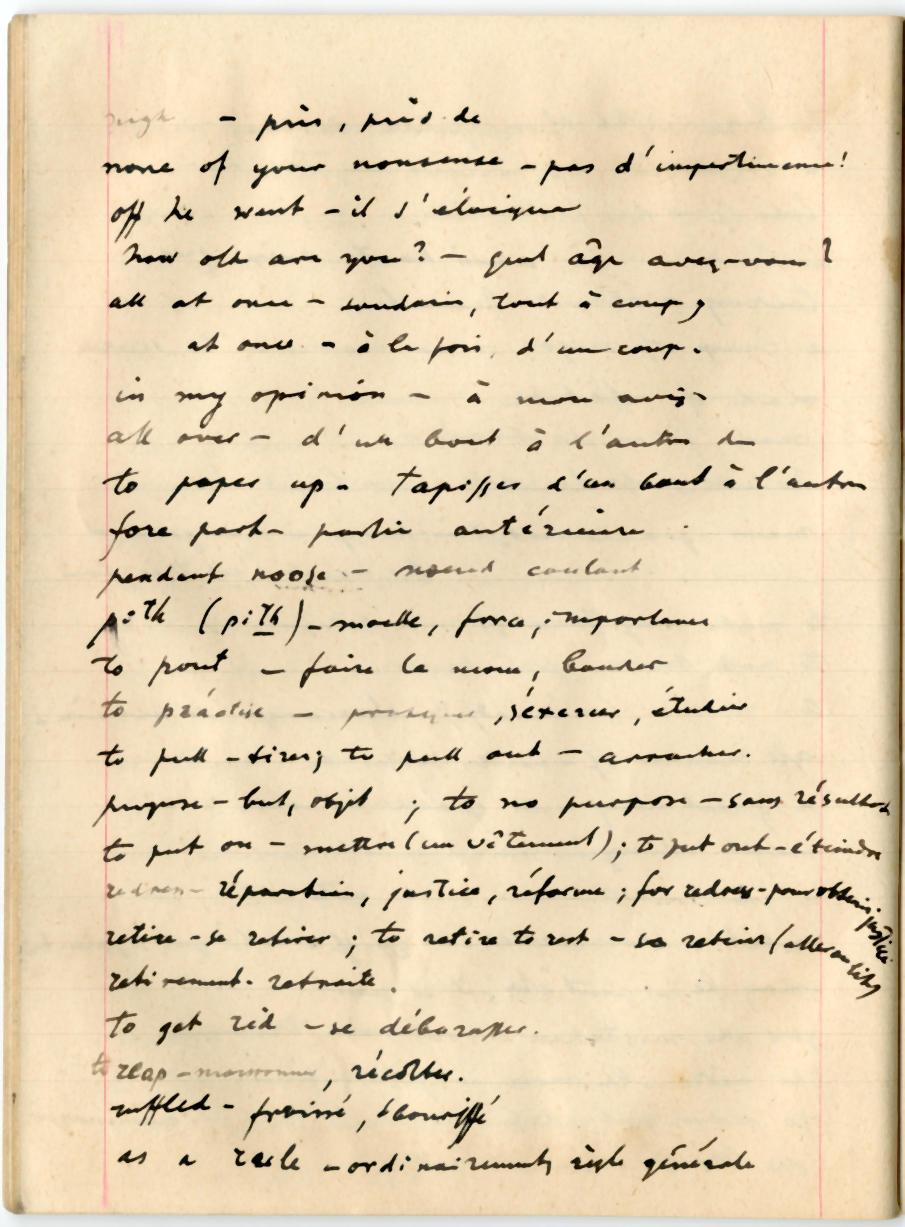 nigh - près, près de
none of your nonsense - pas d'impertinence!
off he went - il s'éloigna
how old are you? - quel âge avez-vous?
all at once - soudain, tout à coup,
at once - à la fois, d'un coup.
in my opinion - à mon avis
all over - d'un bout à l'autre de
to paper up - tapisser d'un bout à l'autre
fore part - partie antérieure
pendent noose - noeud coulant
pith (pith) - moelle, force, importance
to pout - faire la moue, bouder
to practise - pratiquer, s'exercer, étudier
to pull - tirer; to pull out - arracher.
purpose - but, objet ; to no purpose - sans résultat
to put on - mettre (un vêtement); to put out - éteindre
redress - réparation, justice, réforme ; for redress - pour obtenir justice
retire - se retirer ; to retire to rest - se retirer (aller au lit)
retirement - retraite.
to get rid - se débarasser.
to reap - moissonner, récolter.
ruffled - froissé, ébouriffé
as a rule - ordinairement, règle générale